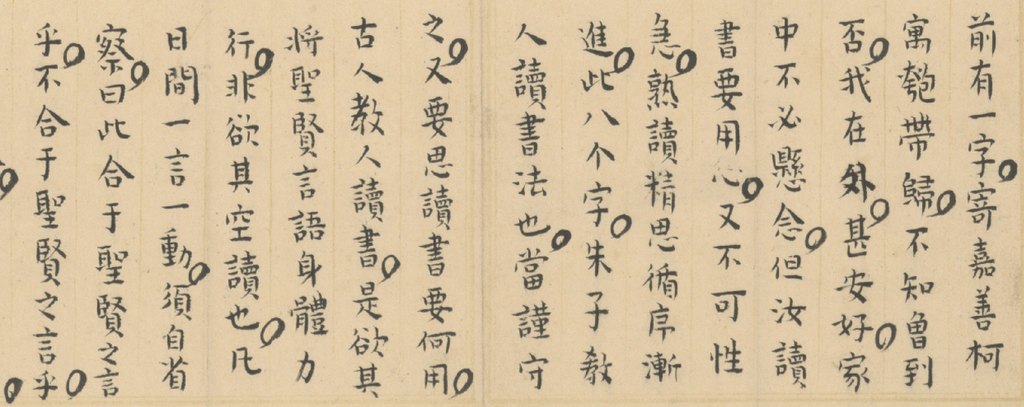 前有一字寄嘉善柯
寓匏帶歸不知曾到
否我在外甚安好家
中不必懸念但汝讀
書要用心又不可性
急熟讀精思循序漸
進此八个字朱子教
人讀書法也當謹守
之又要思讀書要何用
古人教人讀書是欲其
將聖賢言語身體力
行非欲其空讀也凡
日間一言一動須自省
察曰此合于聖賢之言
乎不合于聖賢之言乎